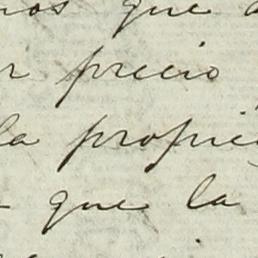 que
r precio
la propie
que la